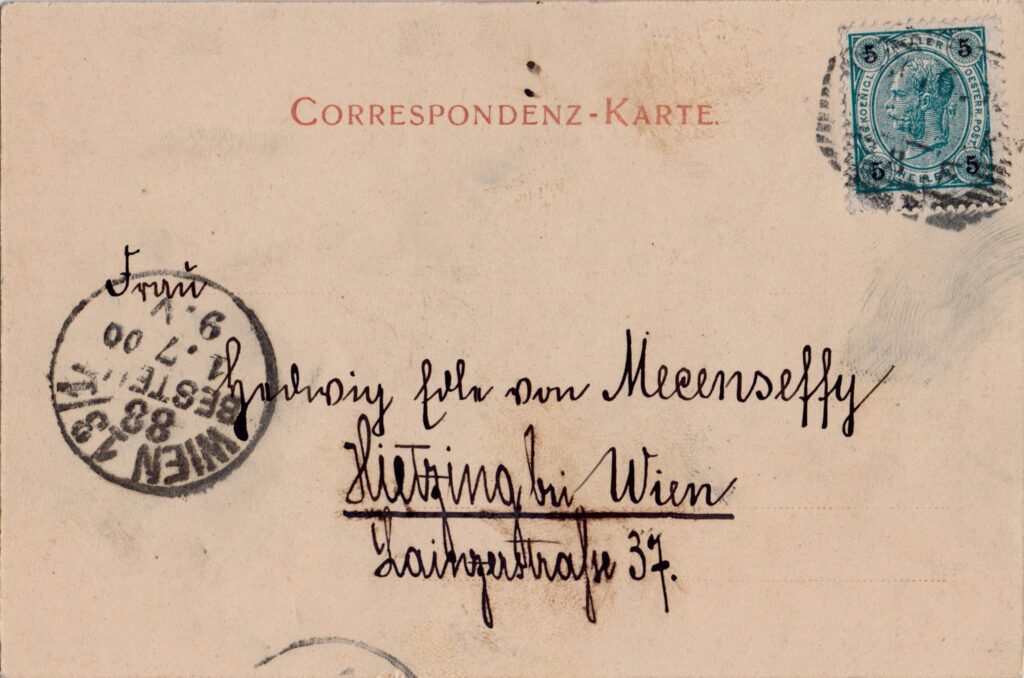 CORRESPONDENZ-KARTE.
5 HELLER 5
KAIS. KOENIGL. OESTERR. POST
5 HELLER 5
Frau
WIEN 13/1
88
BESTELLT
1.7 00
9.V
Hedwig Edle von Mecenseffy
Hietzing bei Wien
Lainzerstraße 37.